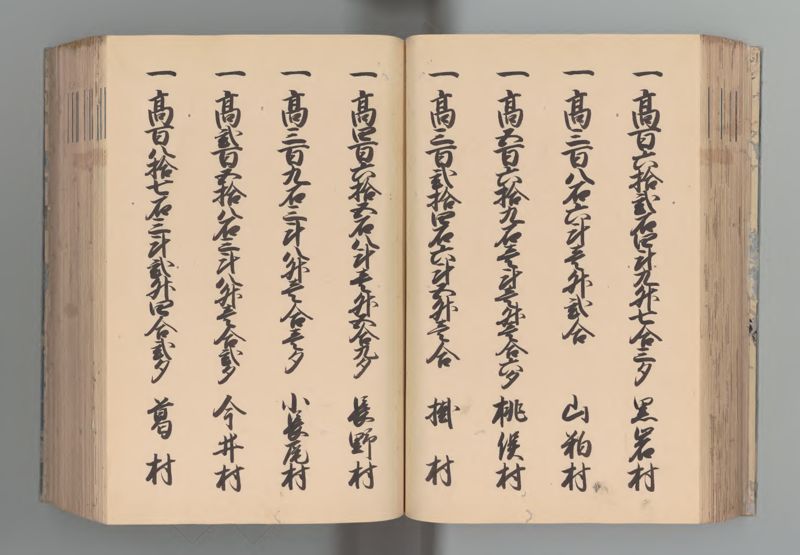 一 高百六拾弐石四斗九升七合三夕 黒岩村
一 高三百八石六斗壱升弐合 山粕村
一 高五百六拾九石壱斗壱升壱合六夕 桃俣村
一 高三百弐拾四石六斗五升壱合 掛村
一 高四百六拾五石八斗壱升五合九夕 長野村
一 高三百九石三斗八升壱合壱夕 小長尾村
一 高弐百五拾八石三斗八升壱合弐夕 今井村
一 高百八拾七石三斗弐升四合弐夕 葛村